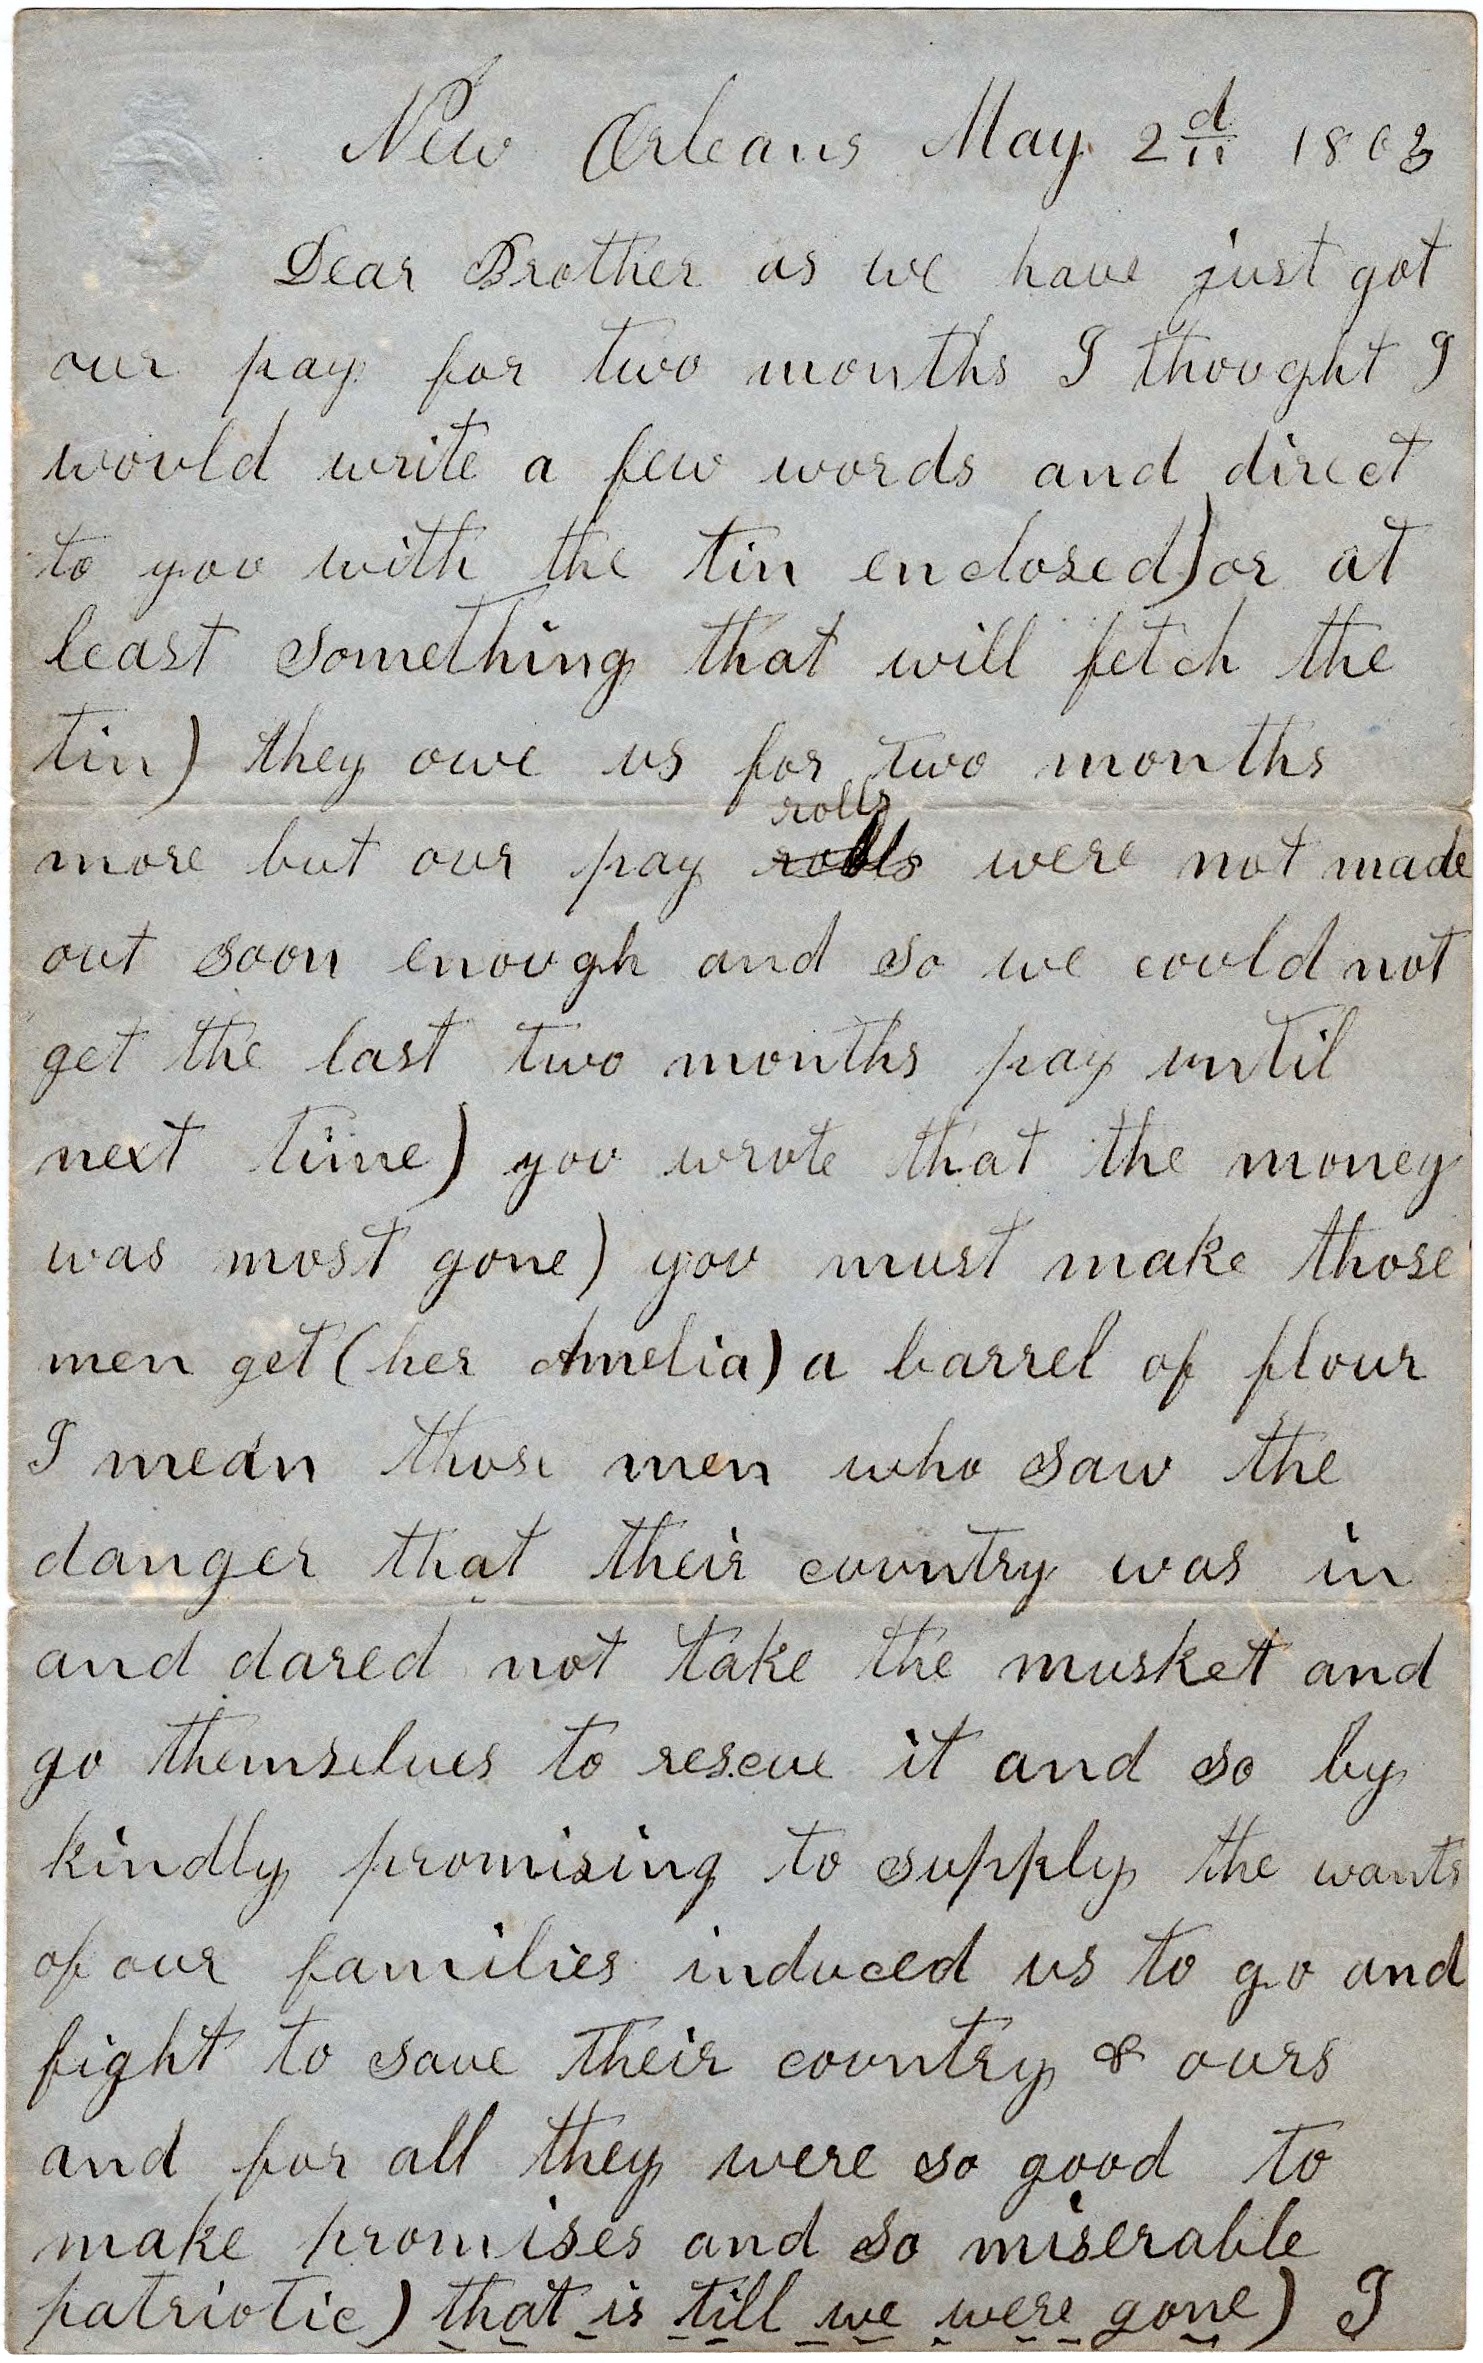 New Orleans May 2d 1863
Dear Brother as we have just got
our pay for two months I thought I
would write a few words and direct
to you with the tin enclosed) or at
least something that will fetch the
tin) they owe us for two months
rolls
more but our pay rolls were not made
out soon enough and so we could not
get the last two months pay until
next time) you wrote that the money
was most gone) you must make those
men get (her Amelia) a barrel of flour
I mean those men who saw the
danger that their country was in
and dared not take the musket and
go themselves to rescue it and so by
kindly promising to supply the wants
of our families induced us to go and
fight to save their country & ours
and for all they were so good to
make promises and so miserable
patriotic) that is till we were gone) I